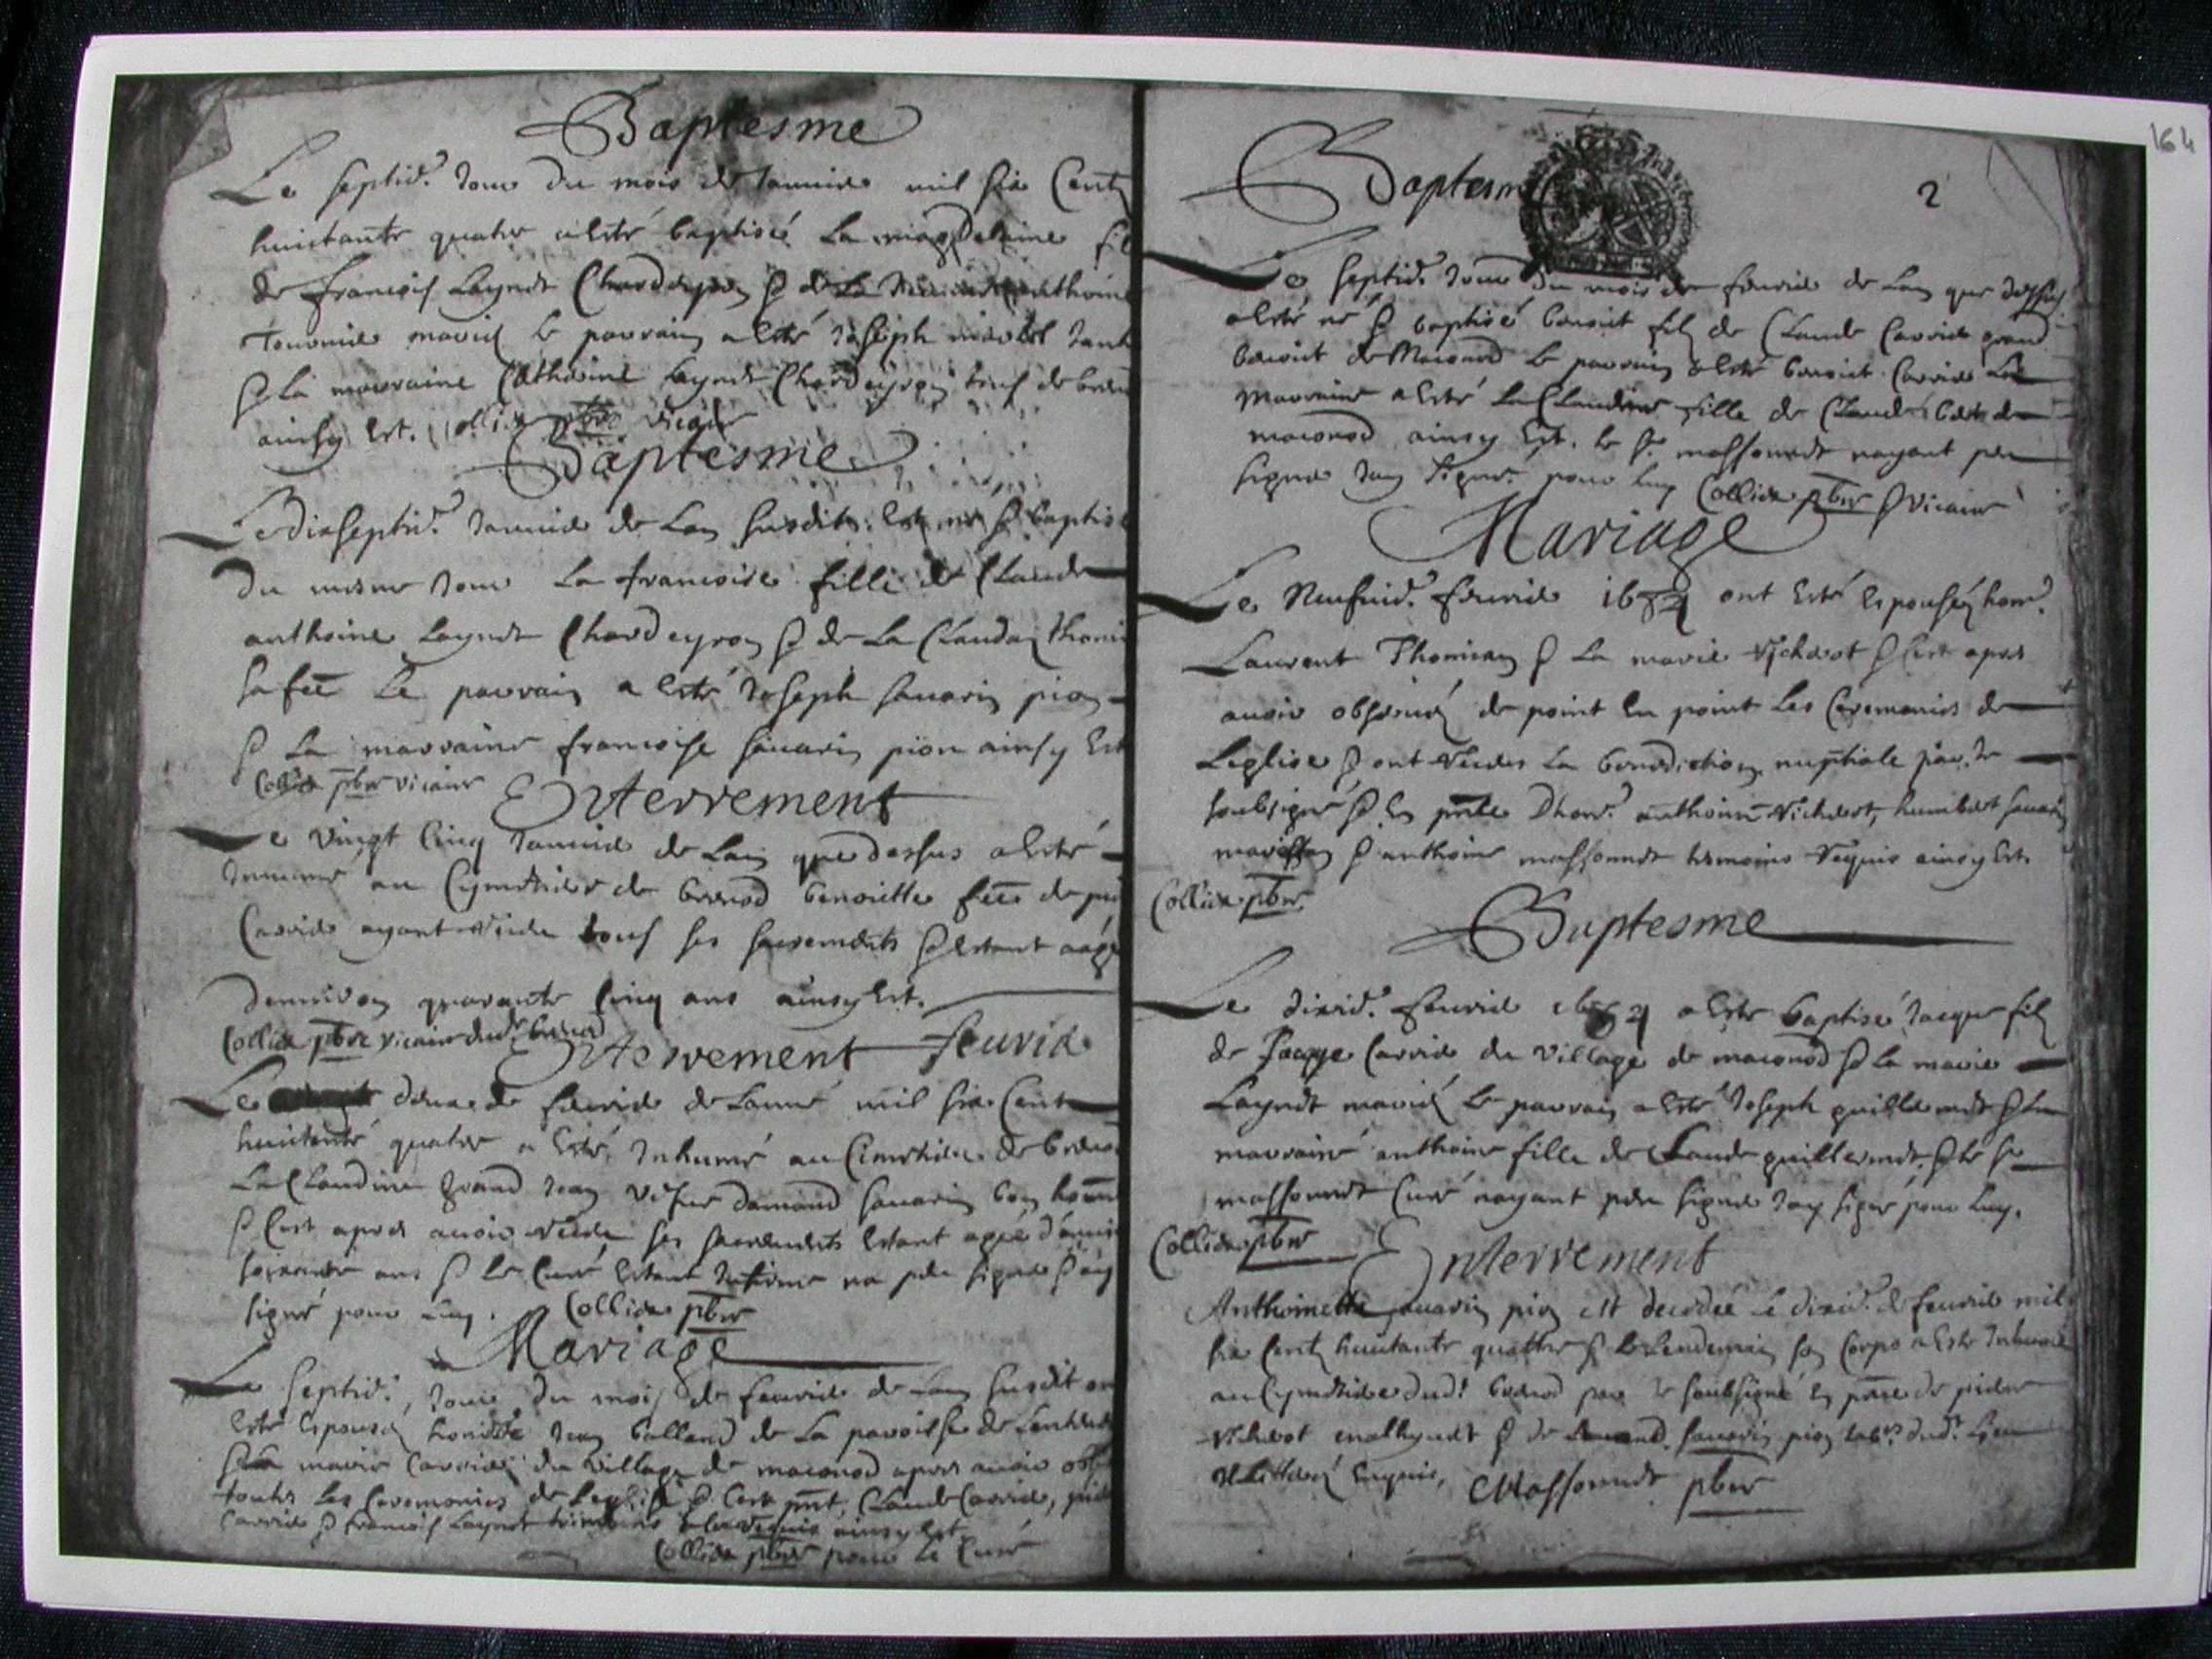 Baptesme
Le septie. Jour du mois de Januier mil six Centz
huictante quatre a esté baptisé La magdelaine fi
de françois Laynet Chardeyron & de La
Tournier mariez le parrain a esté Joseph
& la marraine Catherine Laynet Chardeyron touf de bren
ainsy est. Collier pbre vicaire
Baptesme
Le dixseptie. Januier de Lan susdit est né & baptisé
Du mesme Jour La francoise fille de Claude
anthoine Laynet Chardeyron & de La Clauda Thomi
sa feẽ Le parrain a esté Joseph sauarin pion
& La marraine francoise sauarin pion ainsy Est
Collier pbre vicaire
Enterrement
Le vingt Cinq Januier de Lan que dessus a esté
Inhume au Cymetiere de brenod benoitte feẽ de
Carrier ayant receu touf ses sacrements & estant aagé
denuiron quarante Cinq ans ainsy Est.
Collier pbre vicaire dud. brenod
Enterrement feurier
Le douze de feurier de Lanné mil six Cent
huictante quatre a esté Inhumé au Cimetiere de breno
La Claudine grand Jean vefue damand sauarin bon
& Cest apres auoir receu ses sacrements Estant agée d'enui
soixante ans & le Curé Estant Infirme na peu signer J'ay
signé pour Luy. Collier pbre
Mariage
Le septie. Jour du mois de feurier de Lan susdit on
Esté Espousez Jean balland de La paroisse de
& La marie Carrier du village de maconod apres auoir obs
toutes Les Ceremonies de Leglise & Cest pnt, Claude Carrier,
Carrier & francois Laynet ainsy Est
Collier pbre pour le Curé
164
2
Baptesme
Le septie. Jour du mois de feurier de Lan que dessus
a esté né & baptisé benoict filz de Claude Carrier grand
benoict de Maconod Le parrain a esté benoict Carrier La
Marraine a Esté La Claudine fille de Claude
maconod ainsy Est. le Sr. massonnet nayant peu
signer Jay signé pour luy Collier pbre & vicaire
Mariage
Le Neufuie. feurier 1684 ont Esté Espousez hon.
Laurent Thomian & La marie Nichdot & Cest apres
auoir obserué de point En point Les Ceremonies de
Leglise & ont receu La benediction nuptiale par Je
soubsigné & En pnce Dhon. anthoine Nichdot, humbert sauarin
& anthoine massonnet tesmoins requis ainsy Est.
Collier pbre
Baptesme
Le dixie. feurier 1684 a Esté baptisé Jacque filz
de Jacque Carrier du village de maconod & La marie
Laynet mariez Le parrain a Esté Joseph guillermet & La
marraine anthoine fille de Claude guillermet & le Sr
massonnet Curé nayant peu signer Jay signé pour Luy.
Collier pbre
Enterrement
Anthoinette sauarin pion est decedée le dixie. de feurier mil
six Centz huictante quattre & le Lendemain son Corps a Esté Inhumé
au Cymetiere dud. brenod par Je soubsigné En pnce de pierre
Nichdot & de sauarin pion dud. Lieu
Illitterez Enquis, Massonnet pbre